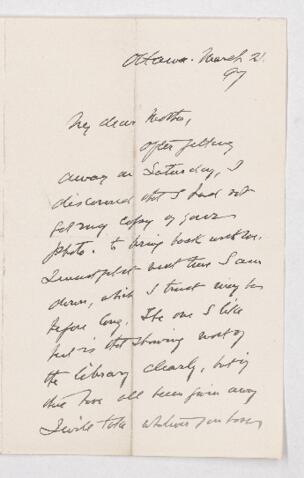 Ottawa. March 21.
97
My dear Mother,
After getting
away on Saturday, I
discovered that I had not
got my copy of your
photo. to bring back with me.
I must get it next time I am
down, which I trust may be
before long. The one I like
best is that showing most of
the library clearly, but if
these have all been given away
I will take whatever you have